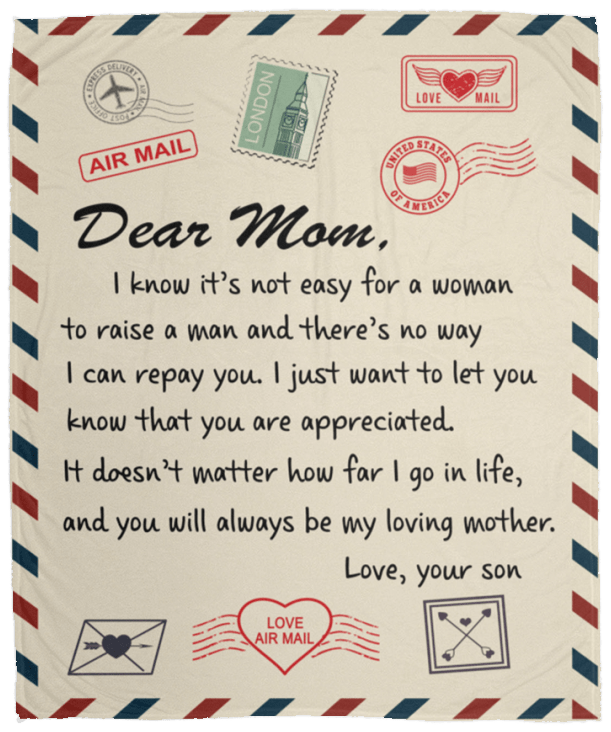 EXPRESS DELIVERY • AIR MAIL • POST OFFICE •
LONDON
LOVE MAIL
AIR MAIL
UNITED STATES
OF AMERICA
Dear Mom,
I know it's not easy for a woman
to raise a man and there's no way
I can repay you. I just want to let you
know that you are appreciated.
It doesn't matter how far I go in life,
and you will always be my loving mother.
Love, your son
LOVE
AIR MAIL